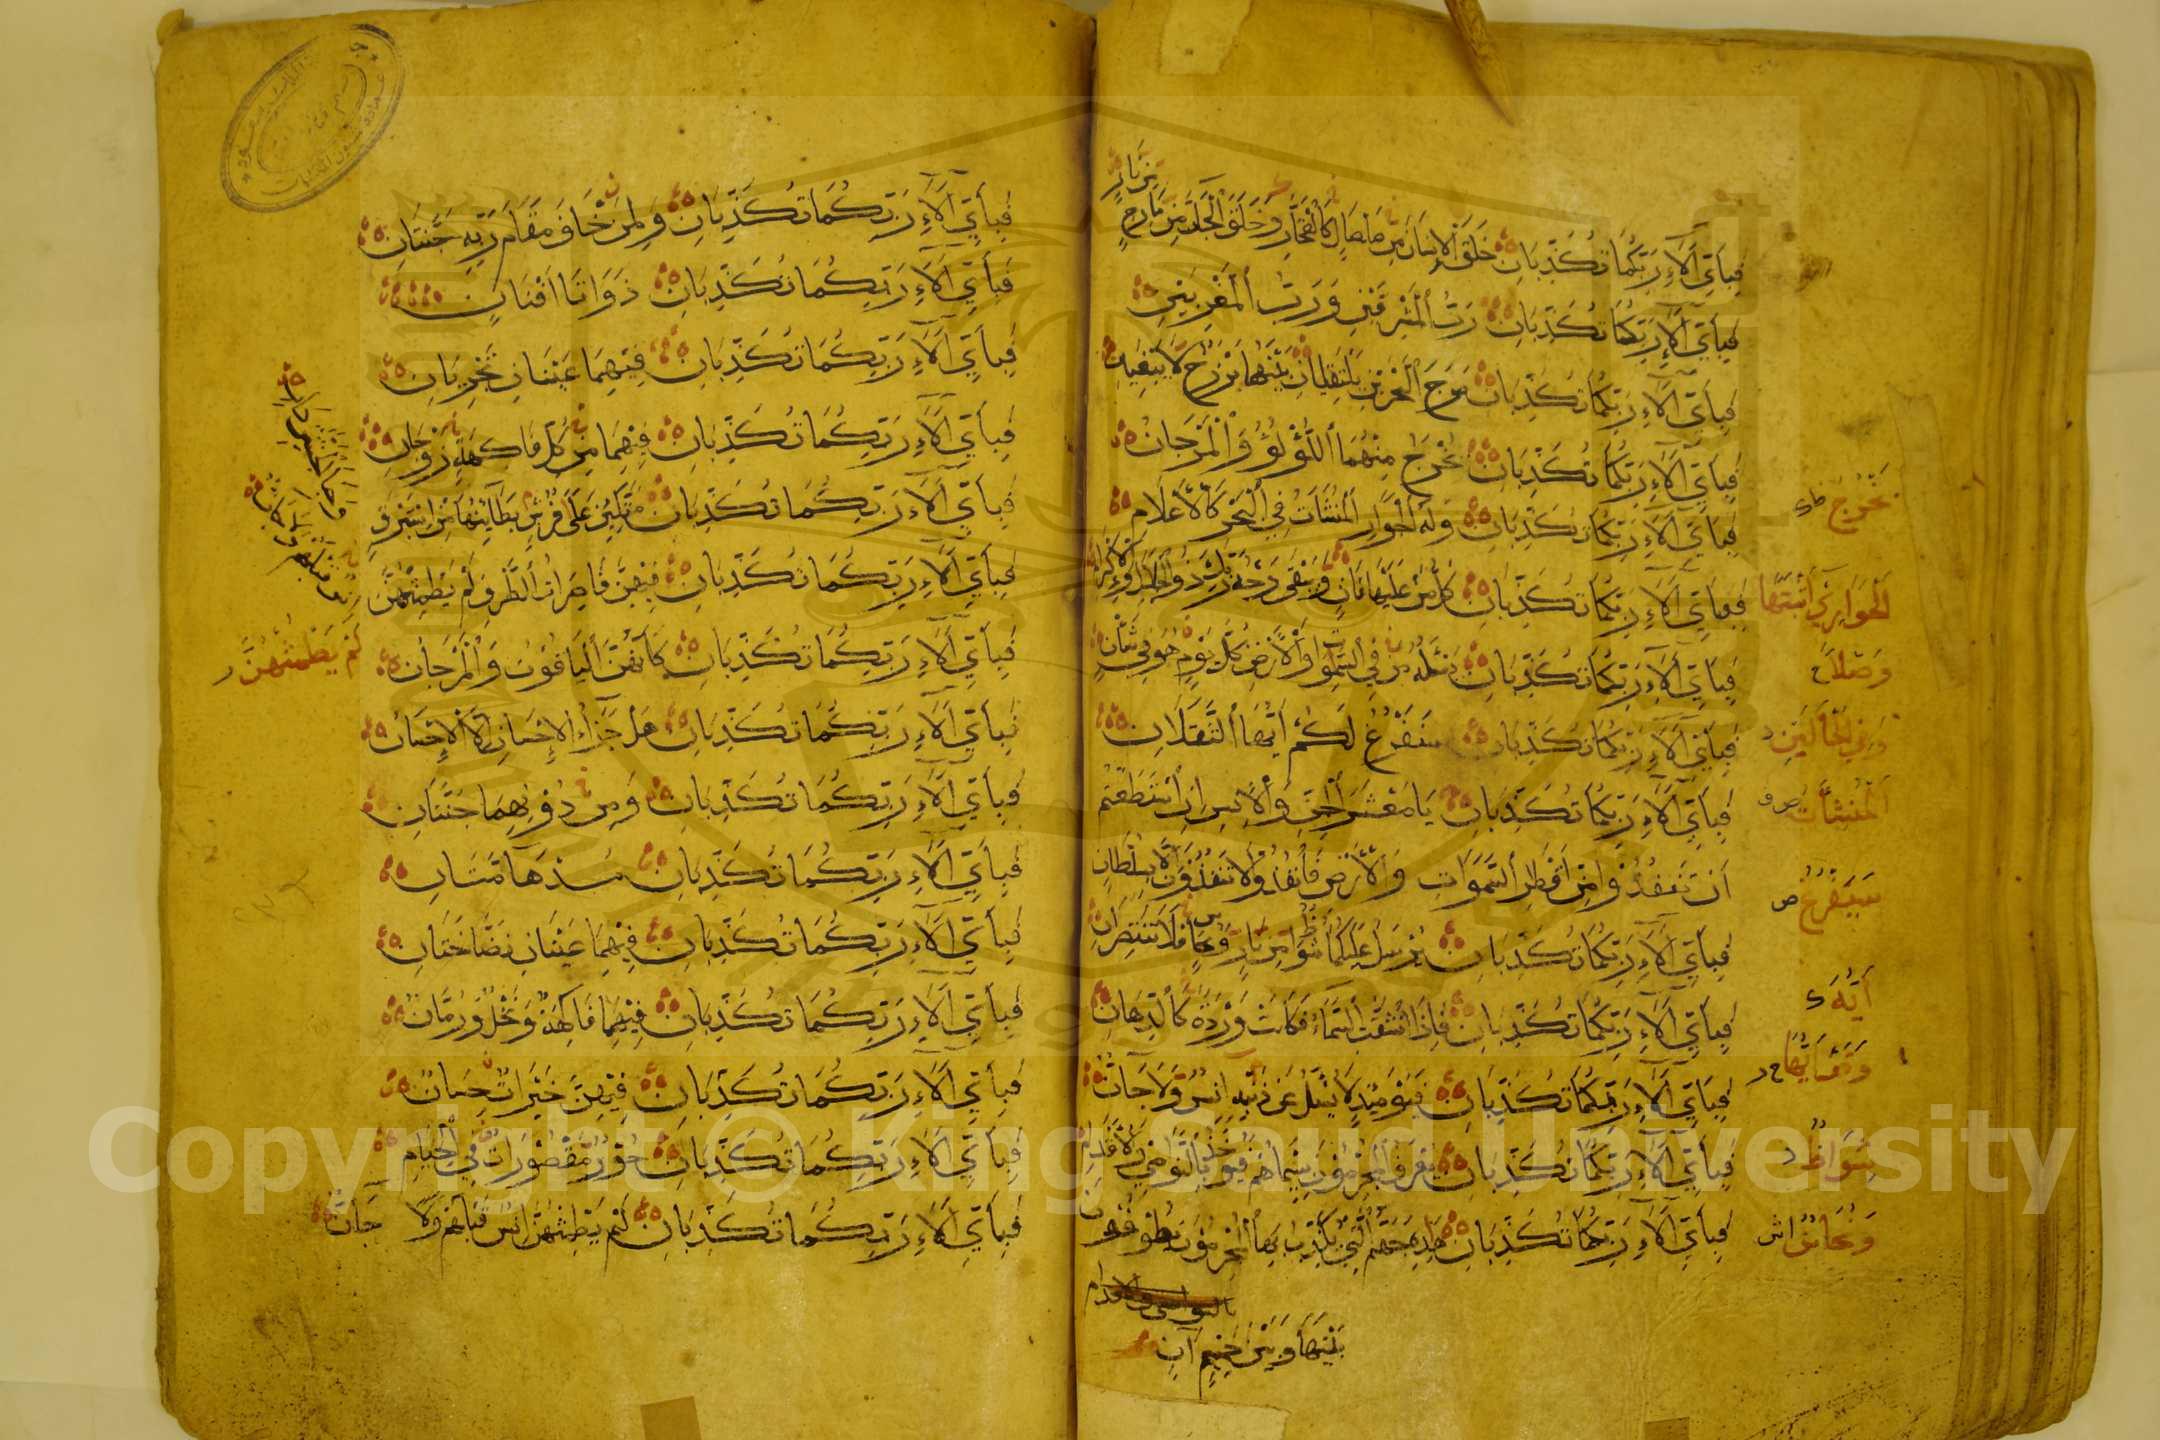 من نار
فبأي آلاء ربكما تكذبان خلق الإنسان من صلصال كالفخار وخلق الجان من مارج
فبأي آلاء ربكما تكذبان رب المشرقين ورب المغربين
فبأي آلاء ربكما تكذبان مرج البحرين يلتقيان بينهما برزخ لا يبغيان
فبأي آلاء ربكما تكذبان يخرج منهما اللؤلؤ والمرجان
فبأي آلاء ربكما تكذبان وله الجوار المنشآت في البحر كالأعلام
فبأي آلاء ربكما تكذبان كل من عليها فان ويبقى وجه ربك ذو الجلال والإكرام
فبأي آلاء ربكما تكذبان يسئله من في السموات والأرض كل يوم هو في شأن
فبأي آلاء ربكما تكذبان سنفرغ لكم أيها الثقلان
فبأي آلاء ربكما تكذبان يا معشر الجن والإنس إن استطعتم
أن تنفذوا من أقطار السموات والأرض فانفذوا لا تنفذون إلا بسلطان
فبأي آلاء ربكما تكذبان يرسل عليكما شواظ من نار ونحاس فلا تنتصران
فبأي آلاء ربكما تكذبان فإذا انشقت السماء فكانت وردة كالدهان
فبأي آلاء ربكما تكذبان فيومئذ لا يسئل عن ذنبه إنس ولا جان
فبأي آلاء ربكما تكذبان يعرف المجرمون بسيماهم فيؤخذ بالنواصي والأقدام
فبأي آلاء ربكما تكذبان هذه جهنم التي يكذب بها المجرمون يطوفون
بالنواصي والأقدام
بينها وبين حميم آن
يخرج
الجوار
وصلا
المنشآت
سيفرغ ص
أيه
شواظ
ونحاس
فبأي آلاء ربكما تكذبان ولمن خاف مقام ربه جنتان
فبأي آلاء ربكما تكذبان ذواتا أفنان
فبأي آلاء ربكما تكذبان فيهما عينان تجريان
فبأي آلاء ربكما تكذبان فيهما من كل فاكهة زوجان
فبأي آلاء ربكما تكذبان متكئين على فرش بطائنها من استبرق
وجنا الجنتين دان
فبأي آلاء ربكما تكذبان فيهن قاصرات الطرف لم يطمثهن
إنس قبلهم ولا جان
فبأي آلاء ربكما تكذبان كأنهن الياقوت والمرجان
لم يطمثهن ر
فبأي آلاء ربكما تكذبان هل جزاء الإحسان إلا الإحسان
فبأي آلاء ربكما تكذبان ومن دونهما جنتان
فبأي آلاء ربكما تكذبان مدهامتان
فبأي آلاء ربكما تكذبان فيهما عينان نضاختان
فبأي آلاء ربكما تكذبان فيهما فاكهة ونخل ورمان
فبأي آلاء ربكما تكذبان فيهن خيرات حسان
فبأي آلاء ربكما تكذبان حور مقصورات في الخيام
فبأي آلاء ربكما تكذبان لم يطمثهن إنس قبلهم ولا جان
Copyright © King Saud University